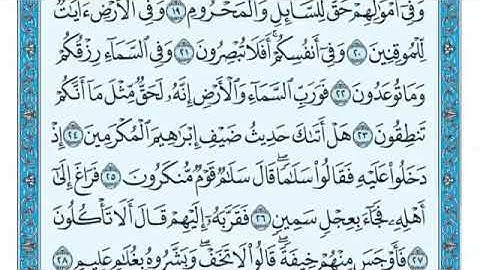 وَفِىٓ أَمْوَٰلِهِمْ حَقٌّ لِّلسَّآئِلِ وَٱلْمَحْرُومِ ١٩ وَفِى ٱلْأَرْضِ ءَايَٰتٌ
لِّلْمُوقِنِينَ ٢٠ وَفِىٓ أَنفُسِكُمْ ۚ أَفَلَا تُبْصِرُونَ ٢١ وَفِى ٱلسَّمَآءِ رِزْقُكُمْ
وَمَا تُوعَدُونَ ٢٢ فَوَرَبِّ ٱلسَّمَآءِ وَٱلْأَرْضِ إِنَّهُۥ لَحَقٌّ مِّثْلَ مَآ أَنَّكُمْ
تَنطِقُونَ ٢٣ هَلْ أَتَىٰكَ حَدِيثُ ضَيْفِ إِبْرَٰهِيمَ ٱلْمُكْرَمِينَ ٢٤ إِذْ
دَخَلُوا۟ عَلَيْهِ فَقَالُوا۟ سَلَٰمًا ۖ قَالَ سَلَٰمٌ قَوْمٌ مُّنكَرُونَ ٢٥ فَرَاغَ إِلَىٰٓ
أَهْلِهِۦ فَجَآءَ بِعِجْلٍ سَمِينٍ ٢٦ فَقَرَّبَهُۥٓ إِلَيْهِمْ قَالَ أَلَا تَأْكُلُونَ
٢٧ فَأَوْجَسَ مِنْهُمْ خِيفَةً ۖ قَالُوا۟ لَا تَخَفْ ۖ وَبَشَّرُوهُ بِغُلَٰمٍ عَلِيمٍ ٢٨